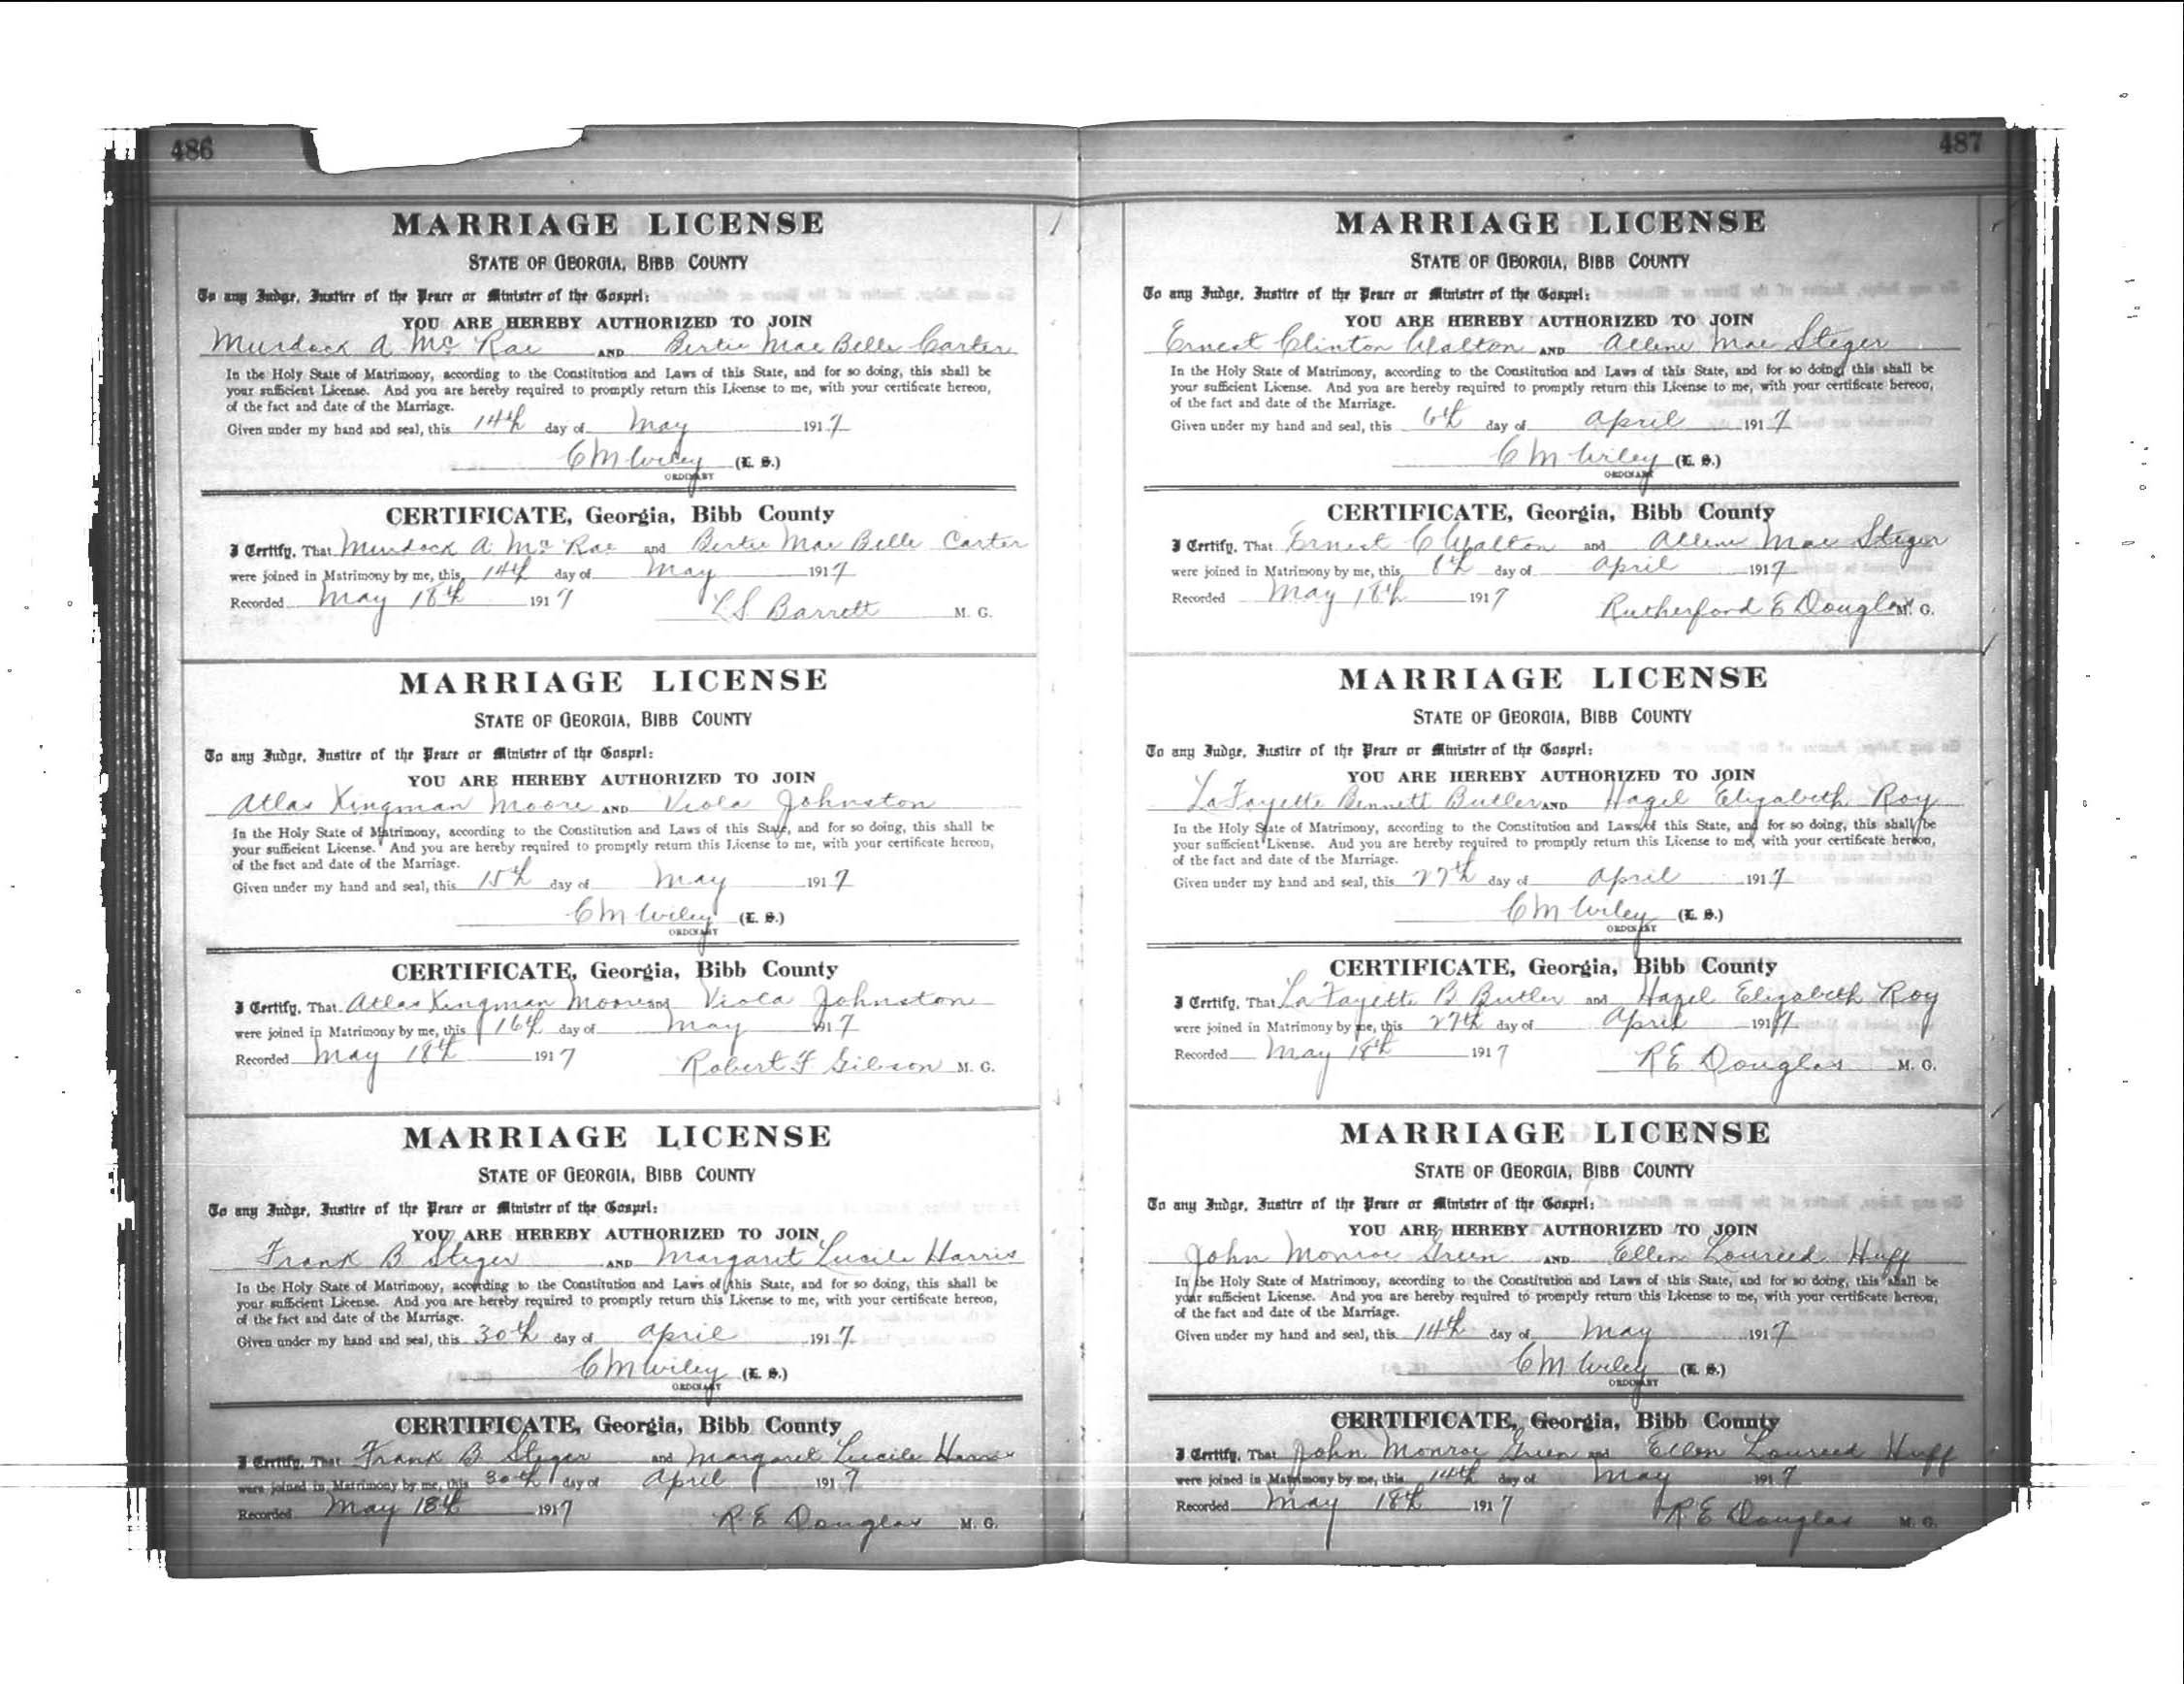 486
MARRIAGE LICENSE
STATE OF GEORGIA, BIBB COUNTY
To any Judge, Justice of the Peace or Minister of the Gospel:
YOU ARE HEREBY AUTHORIZED TO JOIN
Murdock A Mc Rae AND Bertie Mae Belle Carter
In the Holy State of Matrimony, according to the Constitution and Laws of this State, and for so doing, this shall be
your sufficient License. And you are hereby required to promptly return this License to me, with your certificate hereon,
of the fact and date of the Marriage.
Given under my hand and seal, this 14th day of May 1917
C M Wiley (L. S.)
ORDINARY
CERTIFICATE, Georgia, Bibb County
I Certify, That Murdock A Mc Rae and Bertie Mae Belle Carter
were joined in Matrimony by me, this 14th day of May 1917
Recorded May 18th 1917 L S Barrett M. G.
MARRIAGE LICENSE
STATE OF GEORGIA, BIBB COUNTY
To any Judge, Justice of the Peace or Minister of the Gospel:
YOU ARE HEREBY AUTHORIZED TO JOIN
Atlas Kingman Moore AND Viola Johnston
In the Holy State of Matrimony, according to the Constitution and Laws of this State, and for so doing, this shall be
your sufficient License. And you are hereby required to promptly return this License to me, with your certificate hereon,
of the fact and date of the Marriage.
Given under my hand and seal, this 15th day of May 1917
C M Wiley (L. S.)
ORDINARY
CERTIFICATE, Georgia, Bibb County
I Certify, That Atlas Kingman Moore and Viola Johnston
were joined in Matrimony by me, this 16th day of May 1917
Recorded May 18th 1917 Robert F Gibson M. G.
MARRIAGE LICENSE
STATE OF GEORGIA, BIBB COUNTY
To any Judge, Justice of the Peace or Minister of the Gospel:
YOU ARE HEREBY AUTHORIZED TO JOIN
Frank B Steger AND Margaret Lucile Harris
In the Holy State of Matrimony, according to the Constitution and Laws of this State, and for so doing, this shall be
your sufficient License. And you are hereby required to promptly return this License to me, with your certificate hereon,
of the fact and date of the Marriage.
Given under my hand and seal, this 30th day of April 1917
C M Wiley (L. S.)
ORDINARY
CERTIFICATE, Georgia, Bibb County
I Certify, That Frank B Steger and Margaret Lucile Harris
were joined in Matrimony by me, this 30th day of April 1917
Recorded May 18th 1917 R E Douglas M. G.
487
MARRIAGE LICENSE
STATE OF GEORGIA, BIBB COUNTY
To any Judge, Justice of the Peace or Minister of the Gospel:
YOU ARE HEREBY AUTHORIZED TO JOIN
Ernest Clinton Walton AND Allene Mae Steger
In the Holy State of Matrimony, according to the Constitution and Laws of this State, and for so doing, this shall be
your sufficient License. And you are hereby required to promptly return this License to me, with your certificate hereon,
of the fact and date of the Marriage.
Given under my hand and seal, this 6th day of April 1917
C M Wiley (L. S.)
ORDINARY
CERTIFICATE, Georgia, Bibb County
I Certify, That Ernest C Walton and Allene Mae Steger
were joined in Matrimony by me, this 8th day of April 1917
Recorded May 18th 1917 Rutherford E Douglas M. G.
MARRIAGE LICENSE
STATE OF GEORGIA, BIBB COUNTY
To any Judge, Justice of the Peace or Minister of the Gospel:
YOU ARE HEREBY AUTHORIZED TO JOIN
LaFayette Bennett Butler AND Hazel Elizabeth Roy
In the Holy State of Matrimony, according to the Constitution and Laws of this State, and for so doing, this shall be
your sufficient License. And you are hereby required to promptly return this License to me, with your certificate hereon,
of the fact and date of the Marriage.
Given under my hand and seal, this 27th day of April 1917
C M Wiley (L. S.)
ORDINARY
CERTIFICATE, Georgia, Bibb County
I Certify, That LaFayette B Butler and Hazel Elizabeth Roy
were joined in Matrimony by me, this 27th day of April 1917
Recorded May 18th 1917 R E Douglas M. G.
MARRIAGE LICENSE
STATE OF GEORGIA, BIBB COUNTY
To any Judge, Justice of the Peace or Minister of the Gospel:
YOU ARE HEREBY AUTHORIZED TO JOIN
John Monroe Green AND Ellen Loureed Huff
In the Holy State of Matrimony, according to the Constitution and Laws of this State, and for so doing, this shall be
your sufficient License. And you are hereby required to promptly return this License to me, with your certificate hereon,
of the fact and date of the Marriage.
Given under my hand and seal, this 14th day of May 1917
C M Wiley (L. S.)
ORDINARY
CERTIFICATE, Georgia, Bibb County
I Certify, That John Monroe Green and Ellen Loureed Huff
were joined in Matrimony by me, this 14th day of May 1917
Recorded May 18th 1917 R E Douglas M. G.